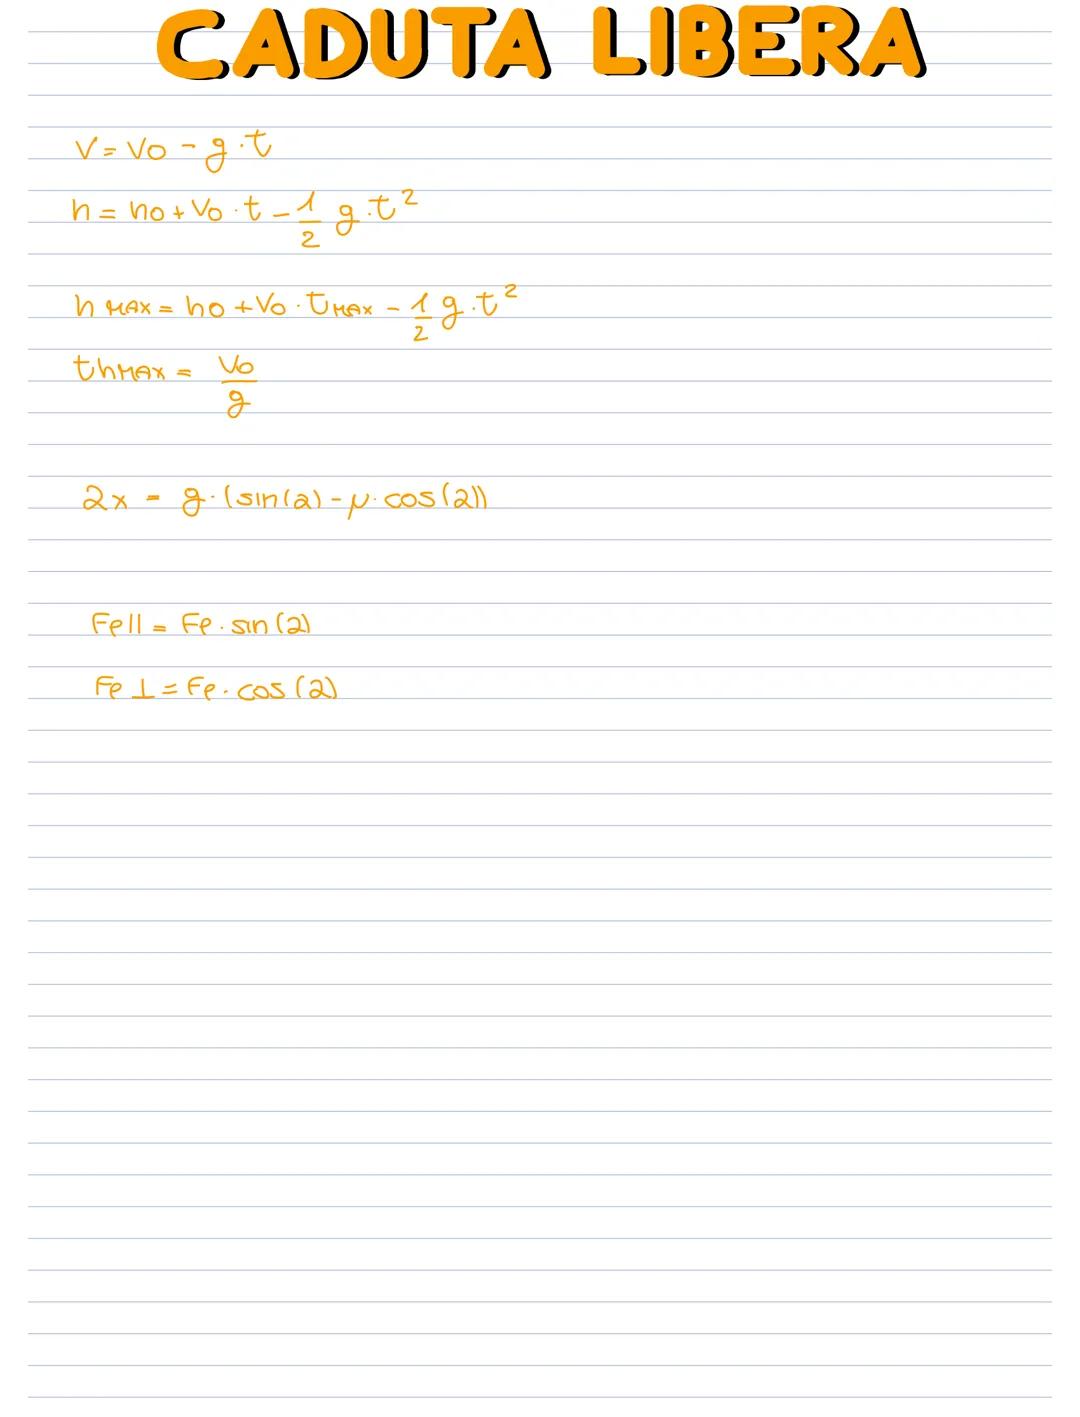 CADUTA LIBERA
V = Vo - g · t
h = ho + Vo · t - 1/2 g · t²
h MAX = ho + Vo · tMAX - 1/2 g · t²
thMAX = Vo/g
2x = g · (sin(2) - μ · cos(2))
Fp|| = Fp · sin(2)
Fp ⊥ = Fp · cos(2)